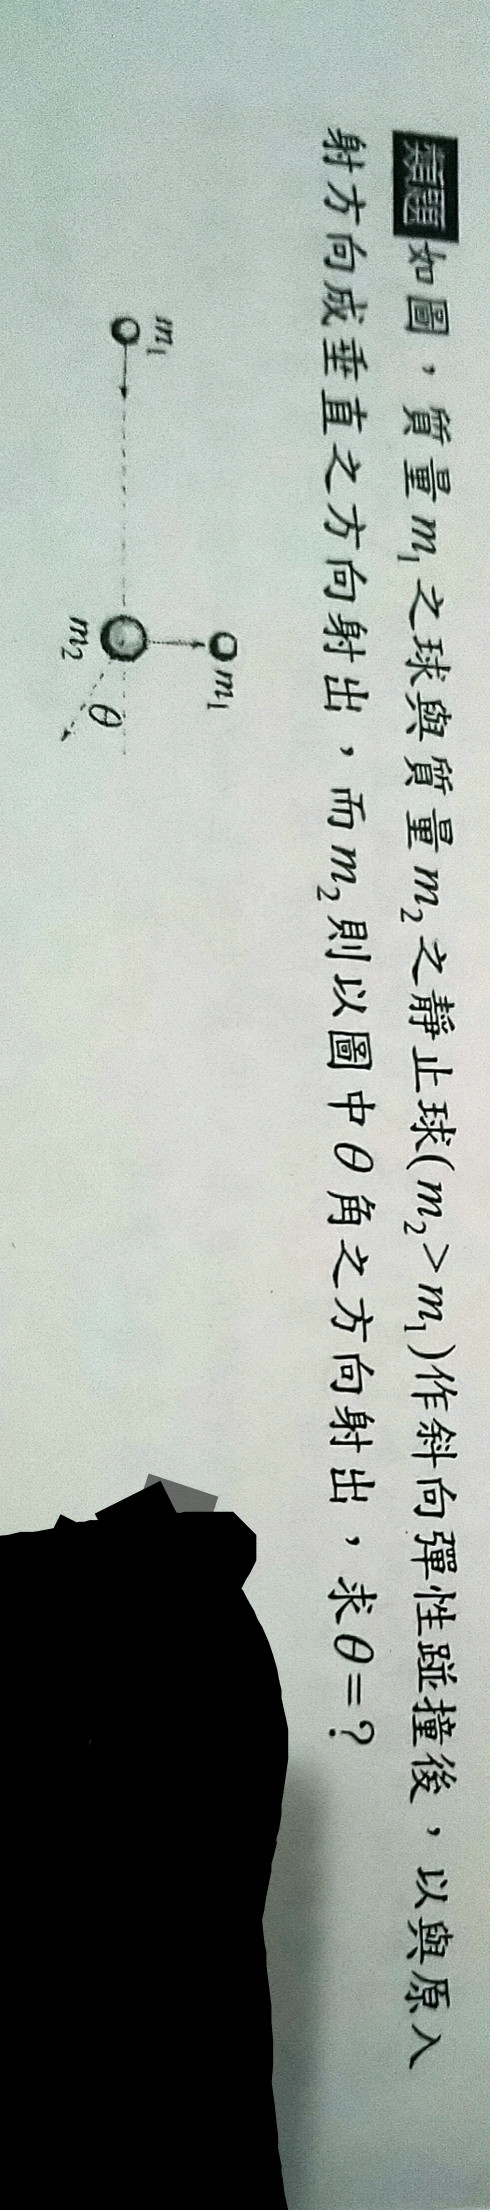 類題 如圖，質量m₁之球與質量m₂之靜止球(m₂>m₁)作斜向彈性踫撞後，以與原入
射方向成垂直之方向射出，而m₂則以圖中θ角之方向射出，求θ=？
m₁
m₁
m₂
θ